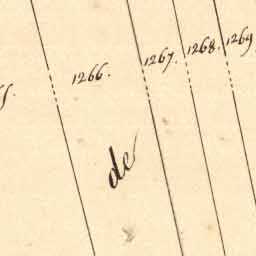 1266. 1267. 1268. 1269
de